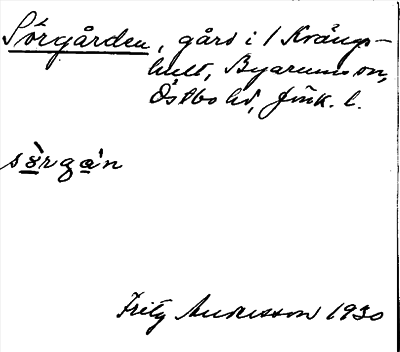 Sörgården, gård i / Krängs-
hult, Byarums sn,
Östbo hd, Jönk. l.
sö̀rga̲n
Fritz Andersson 1930